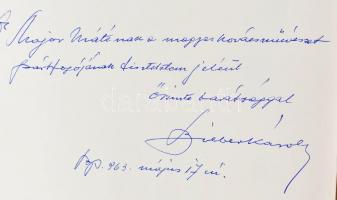 Major Máténak a magyar kovácsművészet
pártfogójának tiszteletem jeléül
őszinte barátsággal
Bieber Károly
Bp. 963. május 17-én.